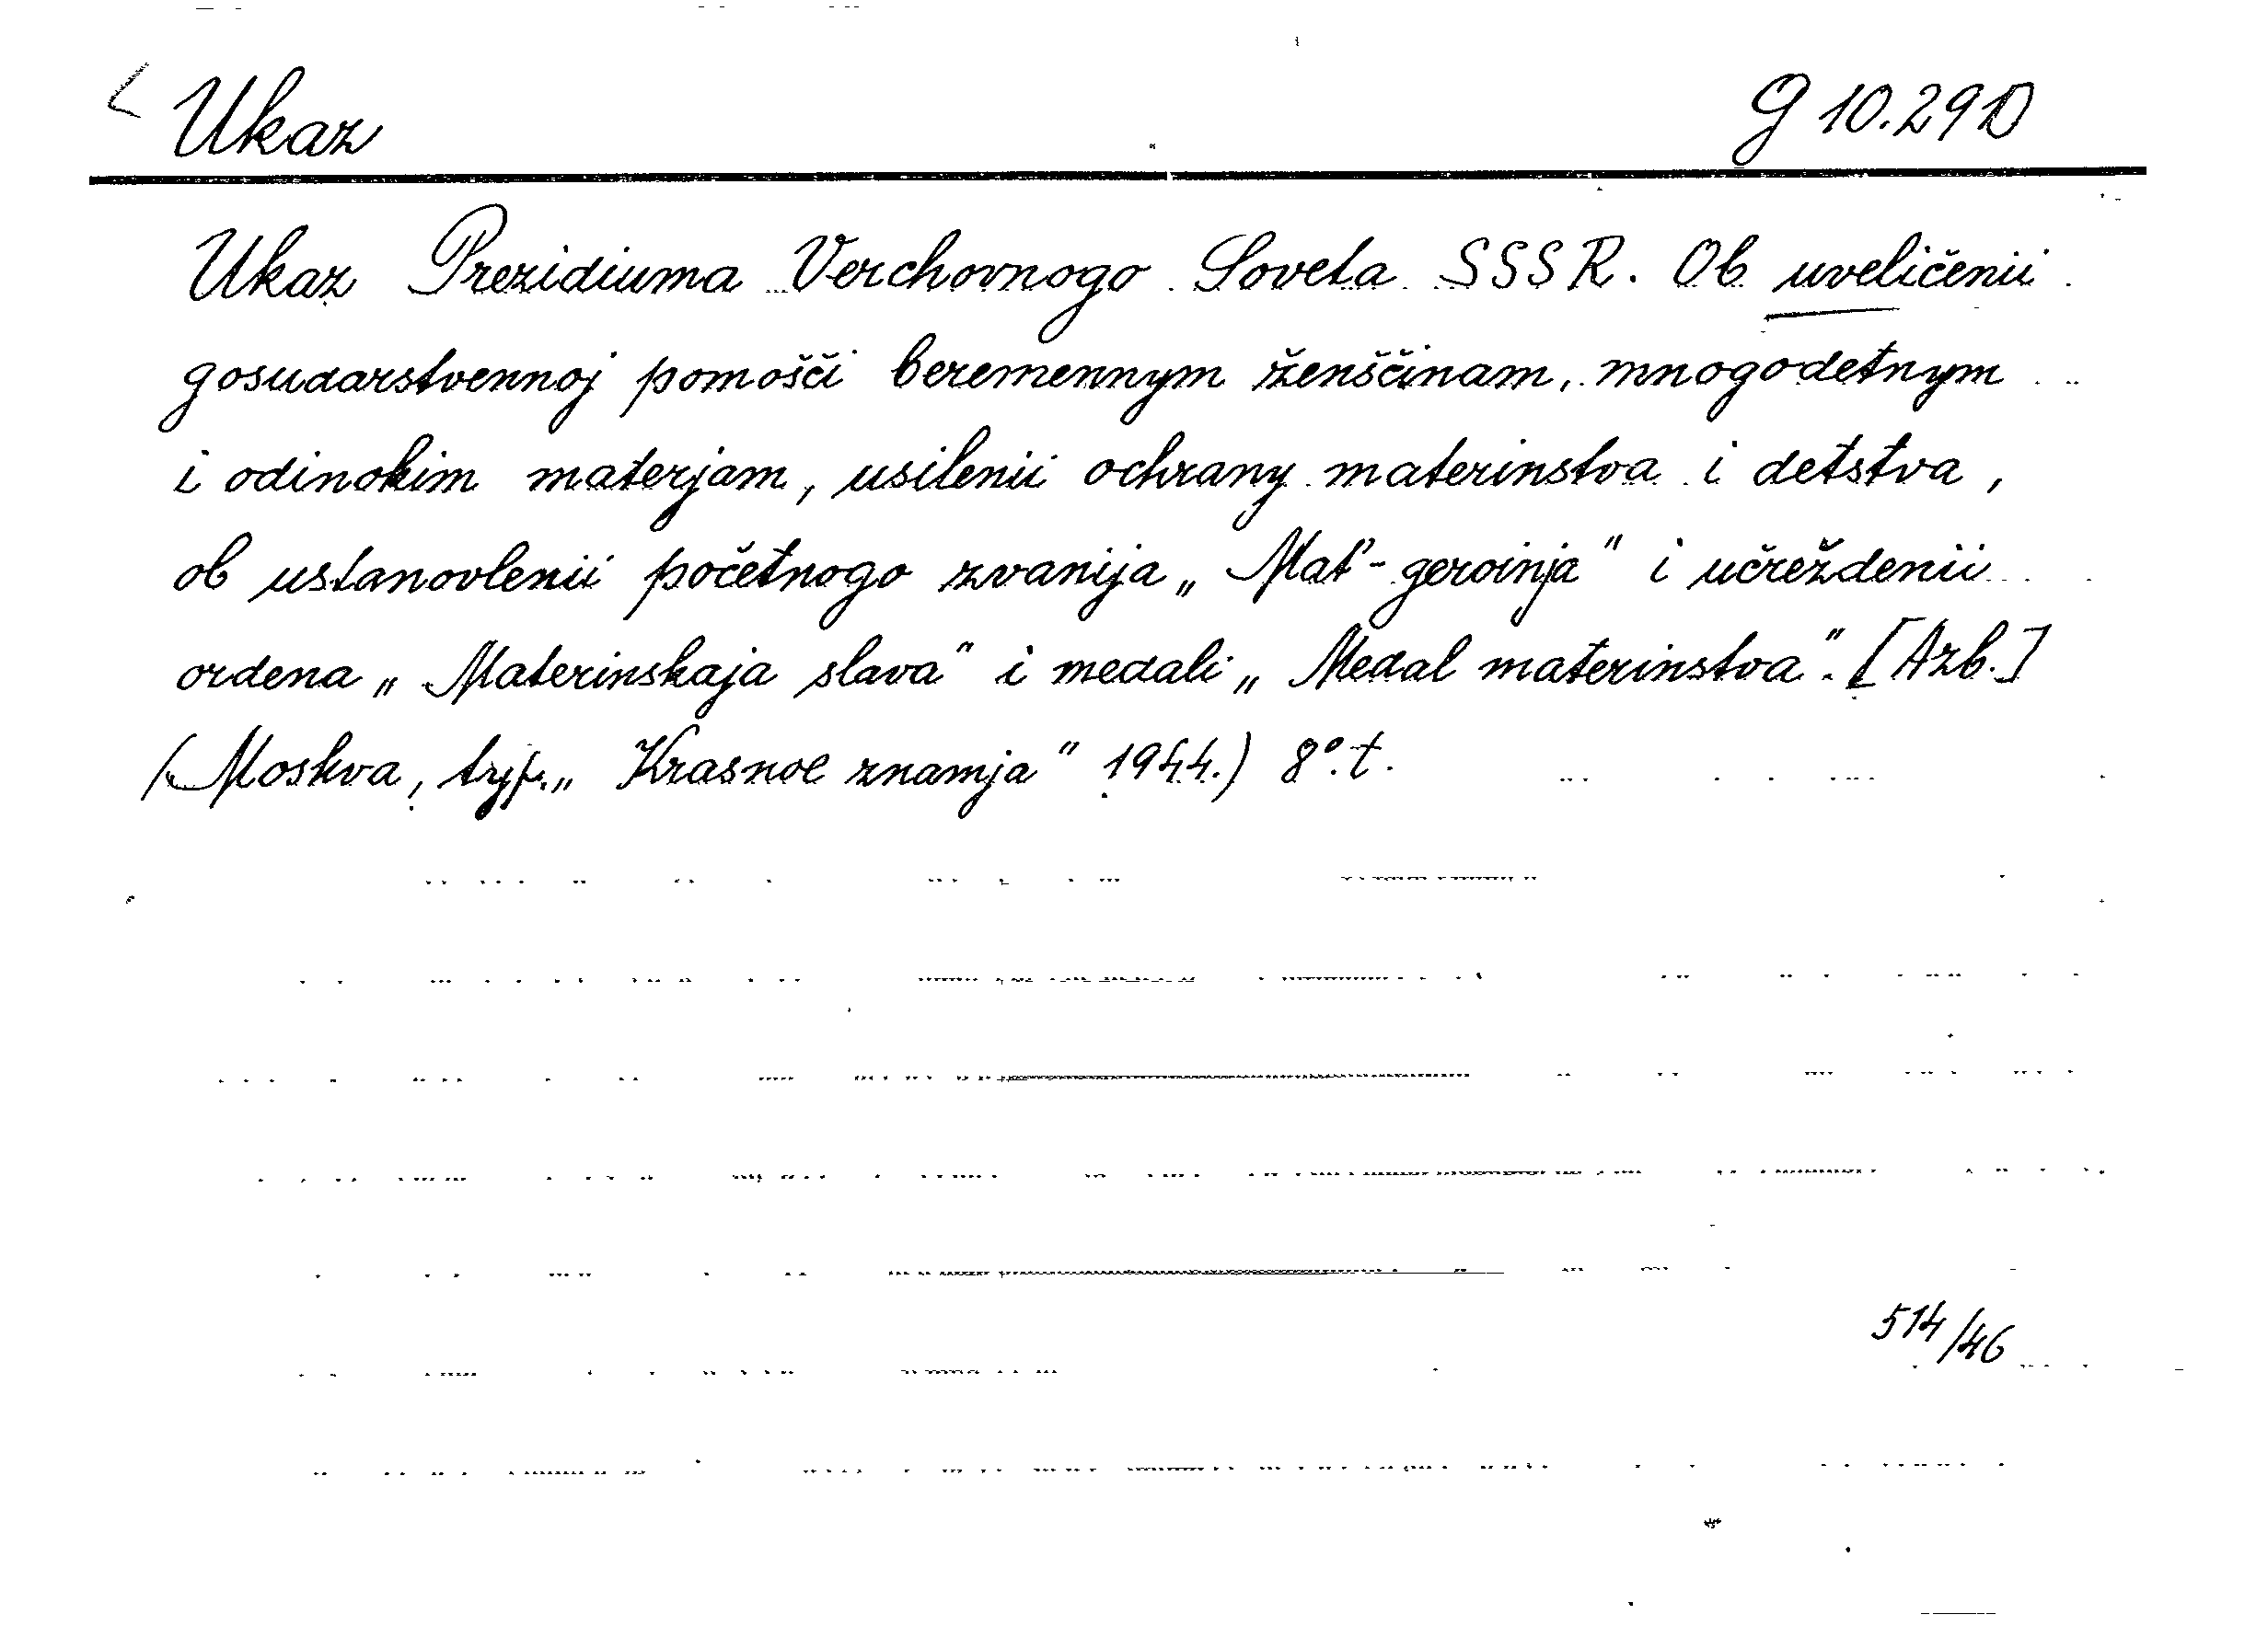 Ukaz G 10.290
Ukaz Prezidiuma Verchovnogo Soveta SSSR. Ob uveličenii
gosudarstvennoj pomošči beremennym ženščinam, mnogodetnym
i odinokim materjam, usilenii ochrany materinstva i detstva,
ob ustanovlenii početnogo zvanija „Mat'-geroinja" i učreždenii
ordena „Materinskaja slava" i medali „Medal materinstva". [Azb.]
(Moskva, typ. „Krasnoe znamja" 1944.) 8° t.
514/46